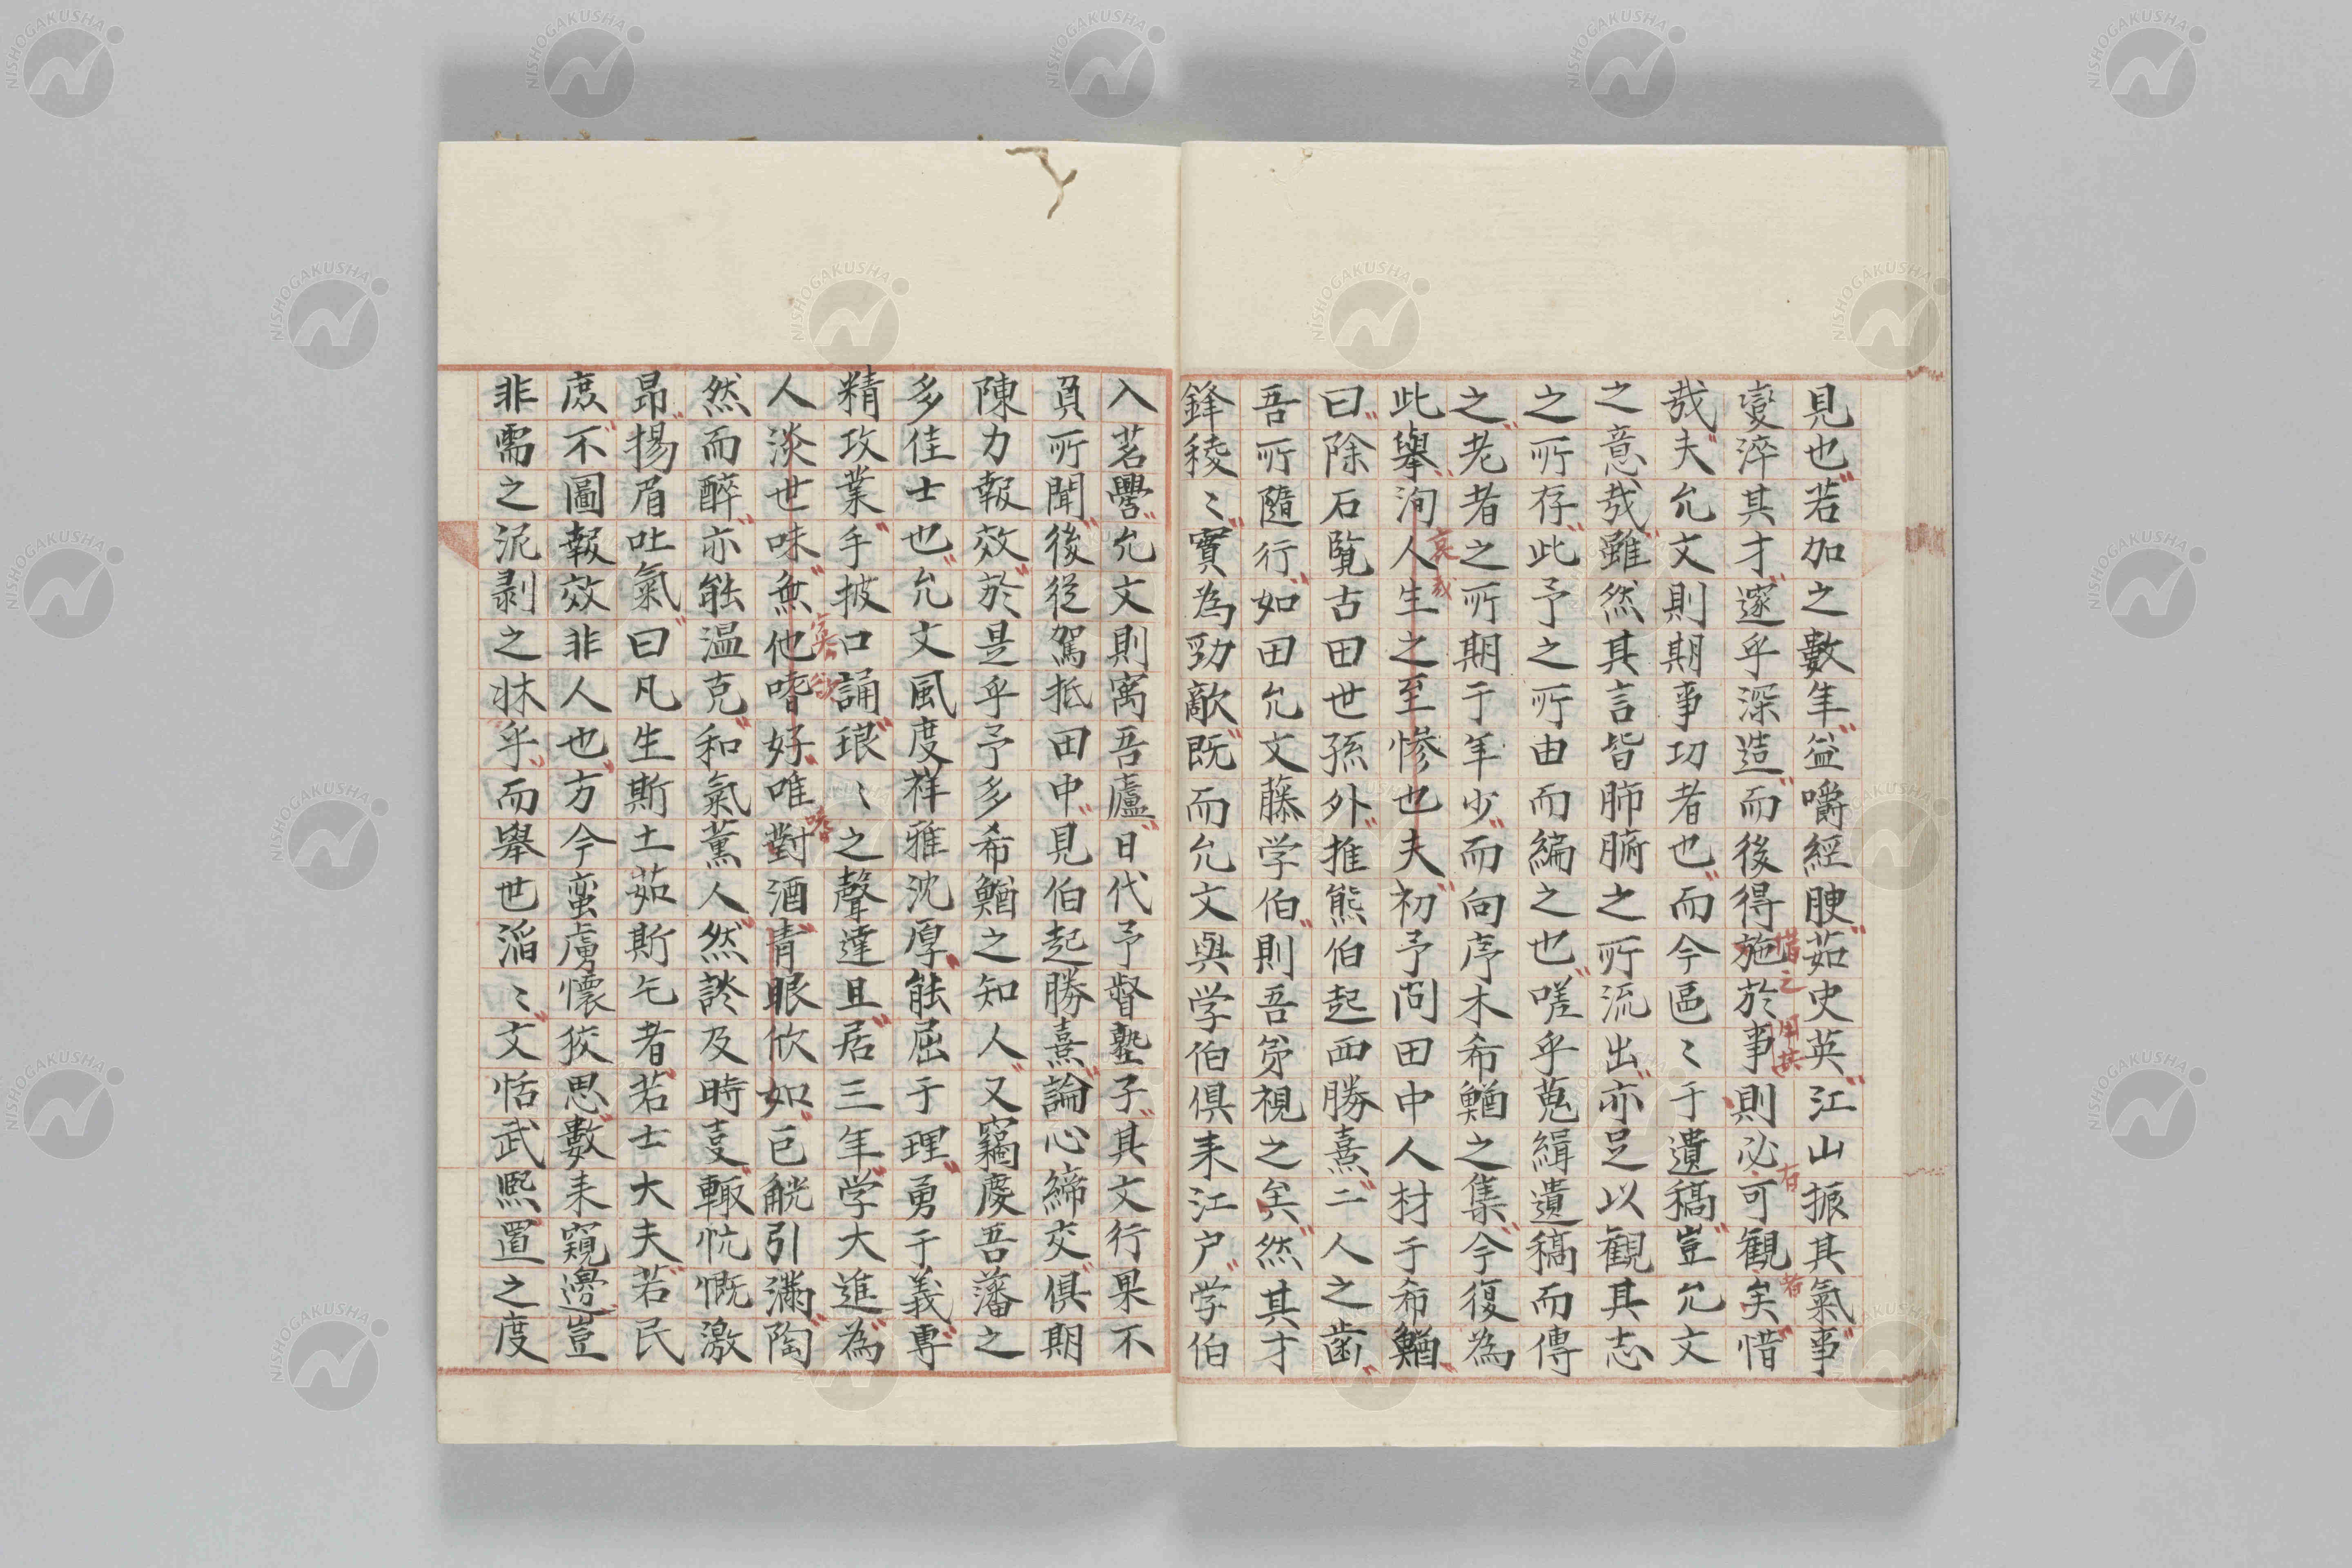 見也若加之數年益嚼經腴茹史英江山振其氣事
變淬其才邃乎深造而後得施於事則必可觀矣惜
哉夫允文則期事功者也而今區〻于遺稿豈允文
之意哉雖然其言皆肺腑之所流出亦足以觀其志
之所存此予之所由而編之也嗟乎蒐緝遺稿而傳
之老者之所期于年少而向序木希鰌之集今復為
此擧洵人生之至惨也夫初予问田中人材于希鰌
曰除石覧古田世孫外推熊伯起西勝熹二人之齒
吾所隨行如田允文藤学伯則吾弟視之矣然其才
鋒稜〻實為勁敵既而允文與学伯俱来江户学伯
入茗黌允文則寓吾廬日代予督塾子其文行果不
負所聞後從駕抵田中見伯起勝熹論心締交俱期
陳力報效於是乎予多希鰌之知人又竊慶吾藩之
多佳士也允文風度祥雅沈厚能屈于理勇于義專
精攻業手披口誦琅〻之聲達旦居三年学大進為
人淡世味無他嗜好唯對酒青眼欣如巨觥引滿陶
然而醉亦能温克和氣薫人然談及時叓輙忼慨激
昻揚眉吐氣曰凡生斯土茹斯乞者若士大夫若民
庶不圖報效非人也方今蛮虜懷狡思數来窺邊豈
非需之泥剥之牀乎而擧世滔〻文恬武熙置之度
哀哉
惜之
用扶
有
者
寡欲
嗜